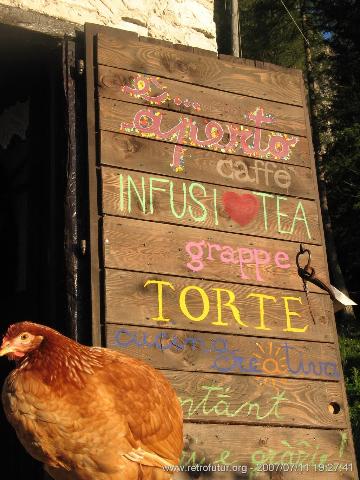 è...
aperto
caffè
INFUSI TEA
grappe
TORTE
cucina
creativa
e gratis!
www.retrofutur.org - 2007/07/11 19:27:41